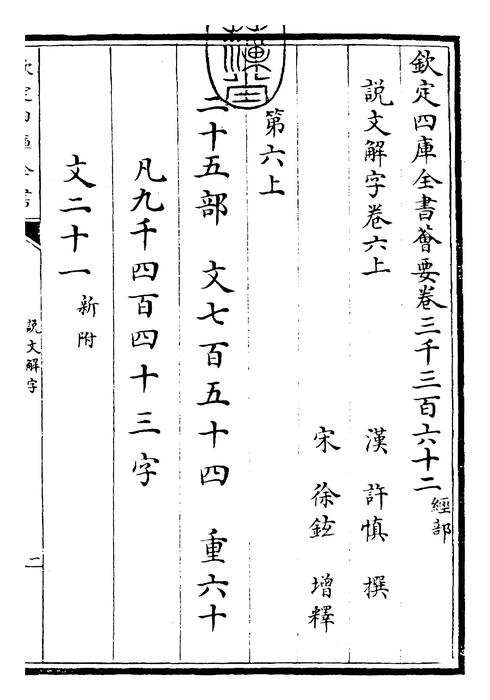 欽定四庫全書薈要卷三千三百六十二 經部
説文解字卷六上
漢 許慎 撰
宋 徐鉉 增釋
第六上
二十五部 文七百五十四 重六十
凡九千四百四十三字
文二十一 新附
説文解字
二